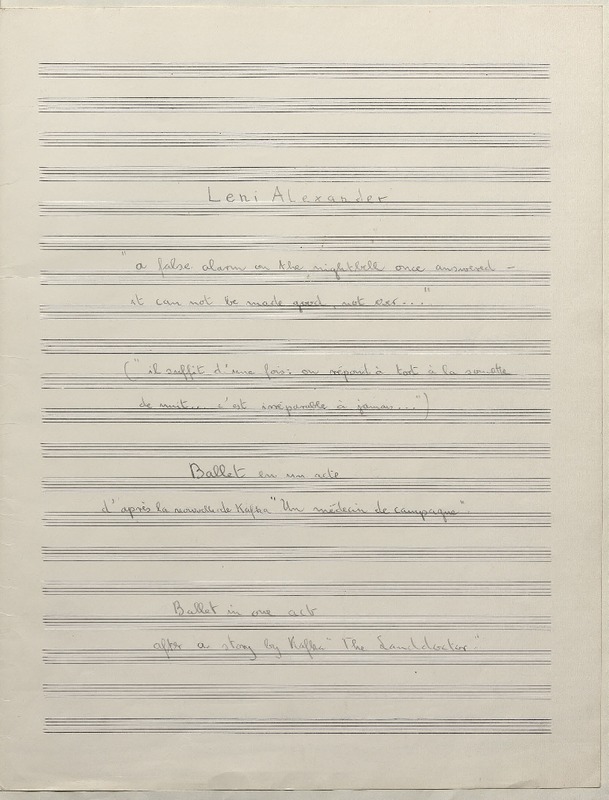 Leni Alexander
"a false alarm on the nightbell once answered –
it can not be made good, not ever..."
("il suffit d'une fois: on répond à tort à la sonnette
de nuit... c'est irréparable à jamais...")
Ballet en un acte
d'après la nouvelle de Kafka "Un médecin de campagne"
Ballet in one act
after a story by Kafka "The Landdoctor"